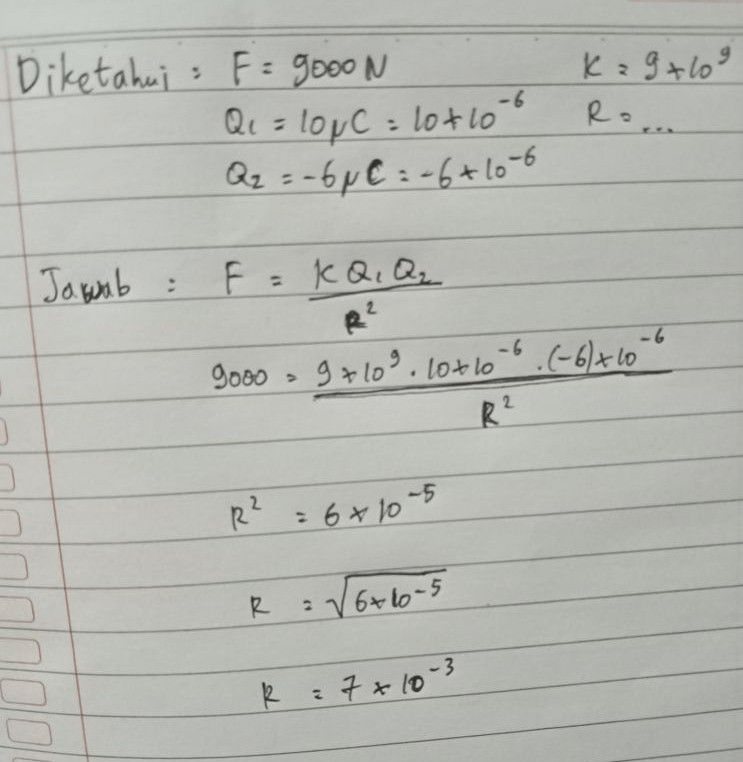 Diketahui : F = 9000 N K = 9 × 10⁹
Q₁ = 10 μC = 10 × 10⁻⁶ R = ...
Q₂ = -6 μC = -6 × 10⁻⁶
Jawab : F = K Q₁ Q₂ / R²
9000 = 9 × 10⁹ . 10 × 10⁻⁶ . (-6) × 10⁻⁶ / R²
R² = 6 × 10⁻⁵
R = √6 × 10⁻⁵
R = 7 × 10⁻³